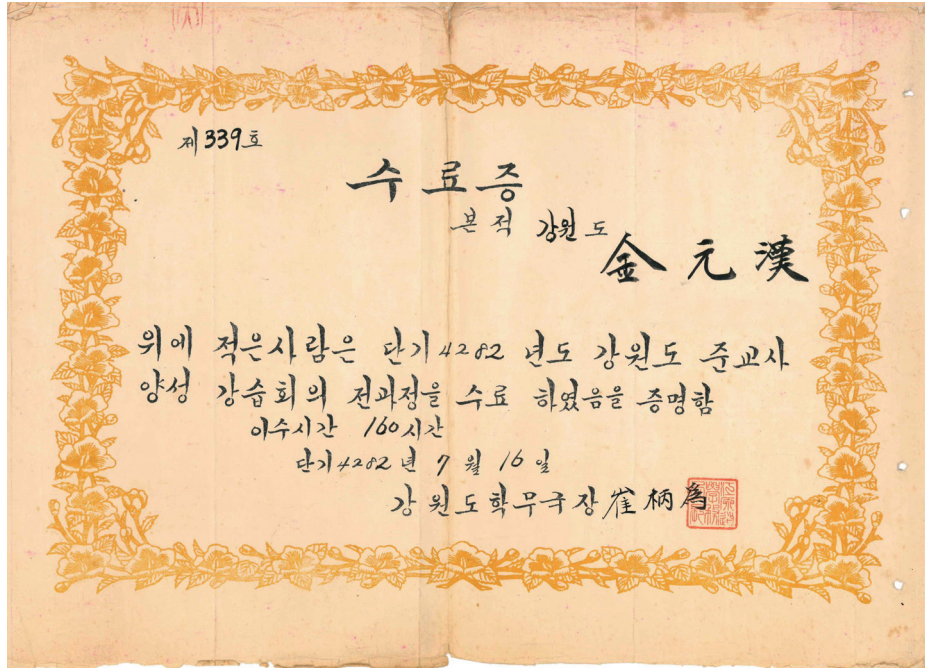 제339호
수료증
본적 강원도
金元漢
위에 적은사람은 단기4282 년도 강원도 준교사
양성 강습회의 전과정을 수료 하였음을 증명함
이수시간 160시간
단기4282년 7월 16일
강원도학무국장 崔柄爲